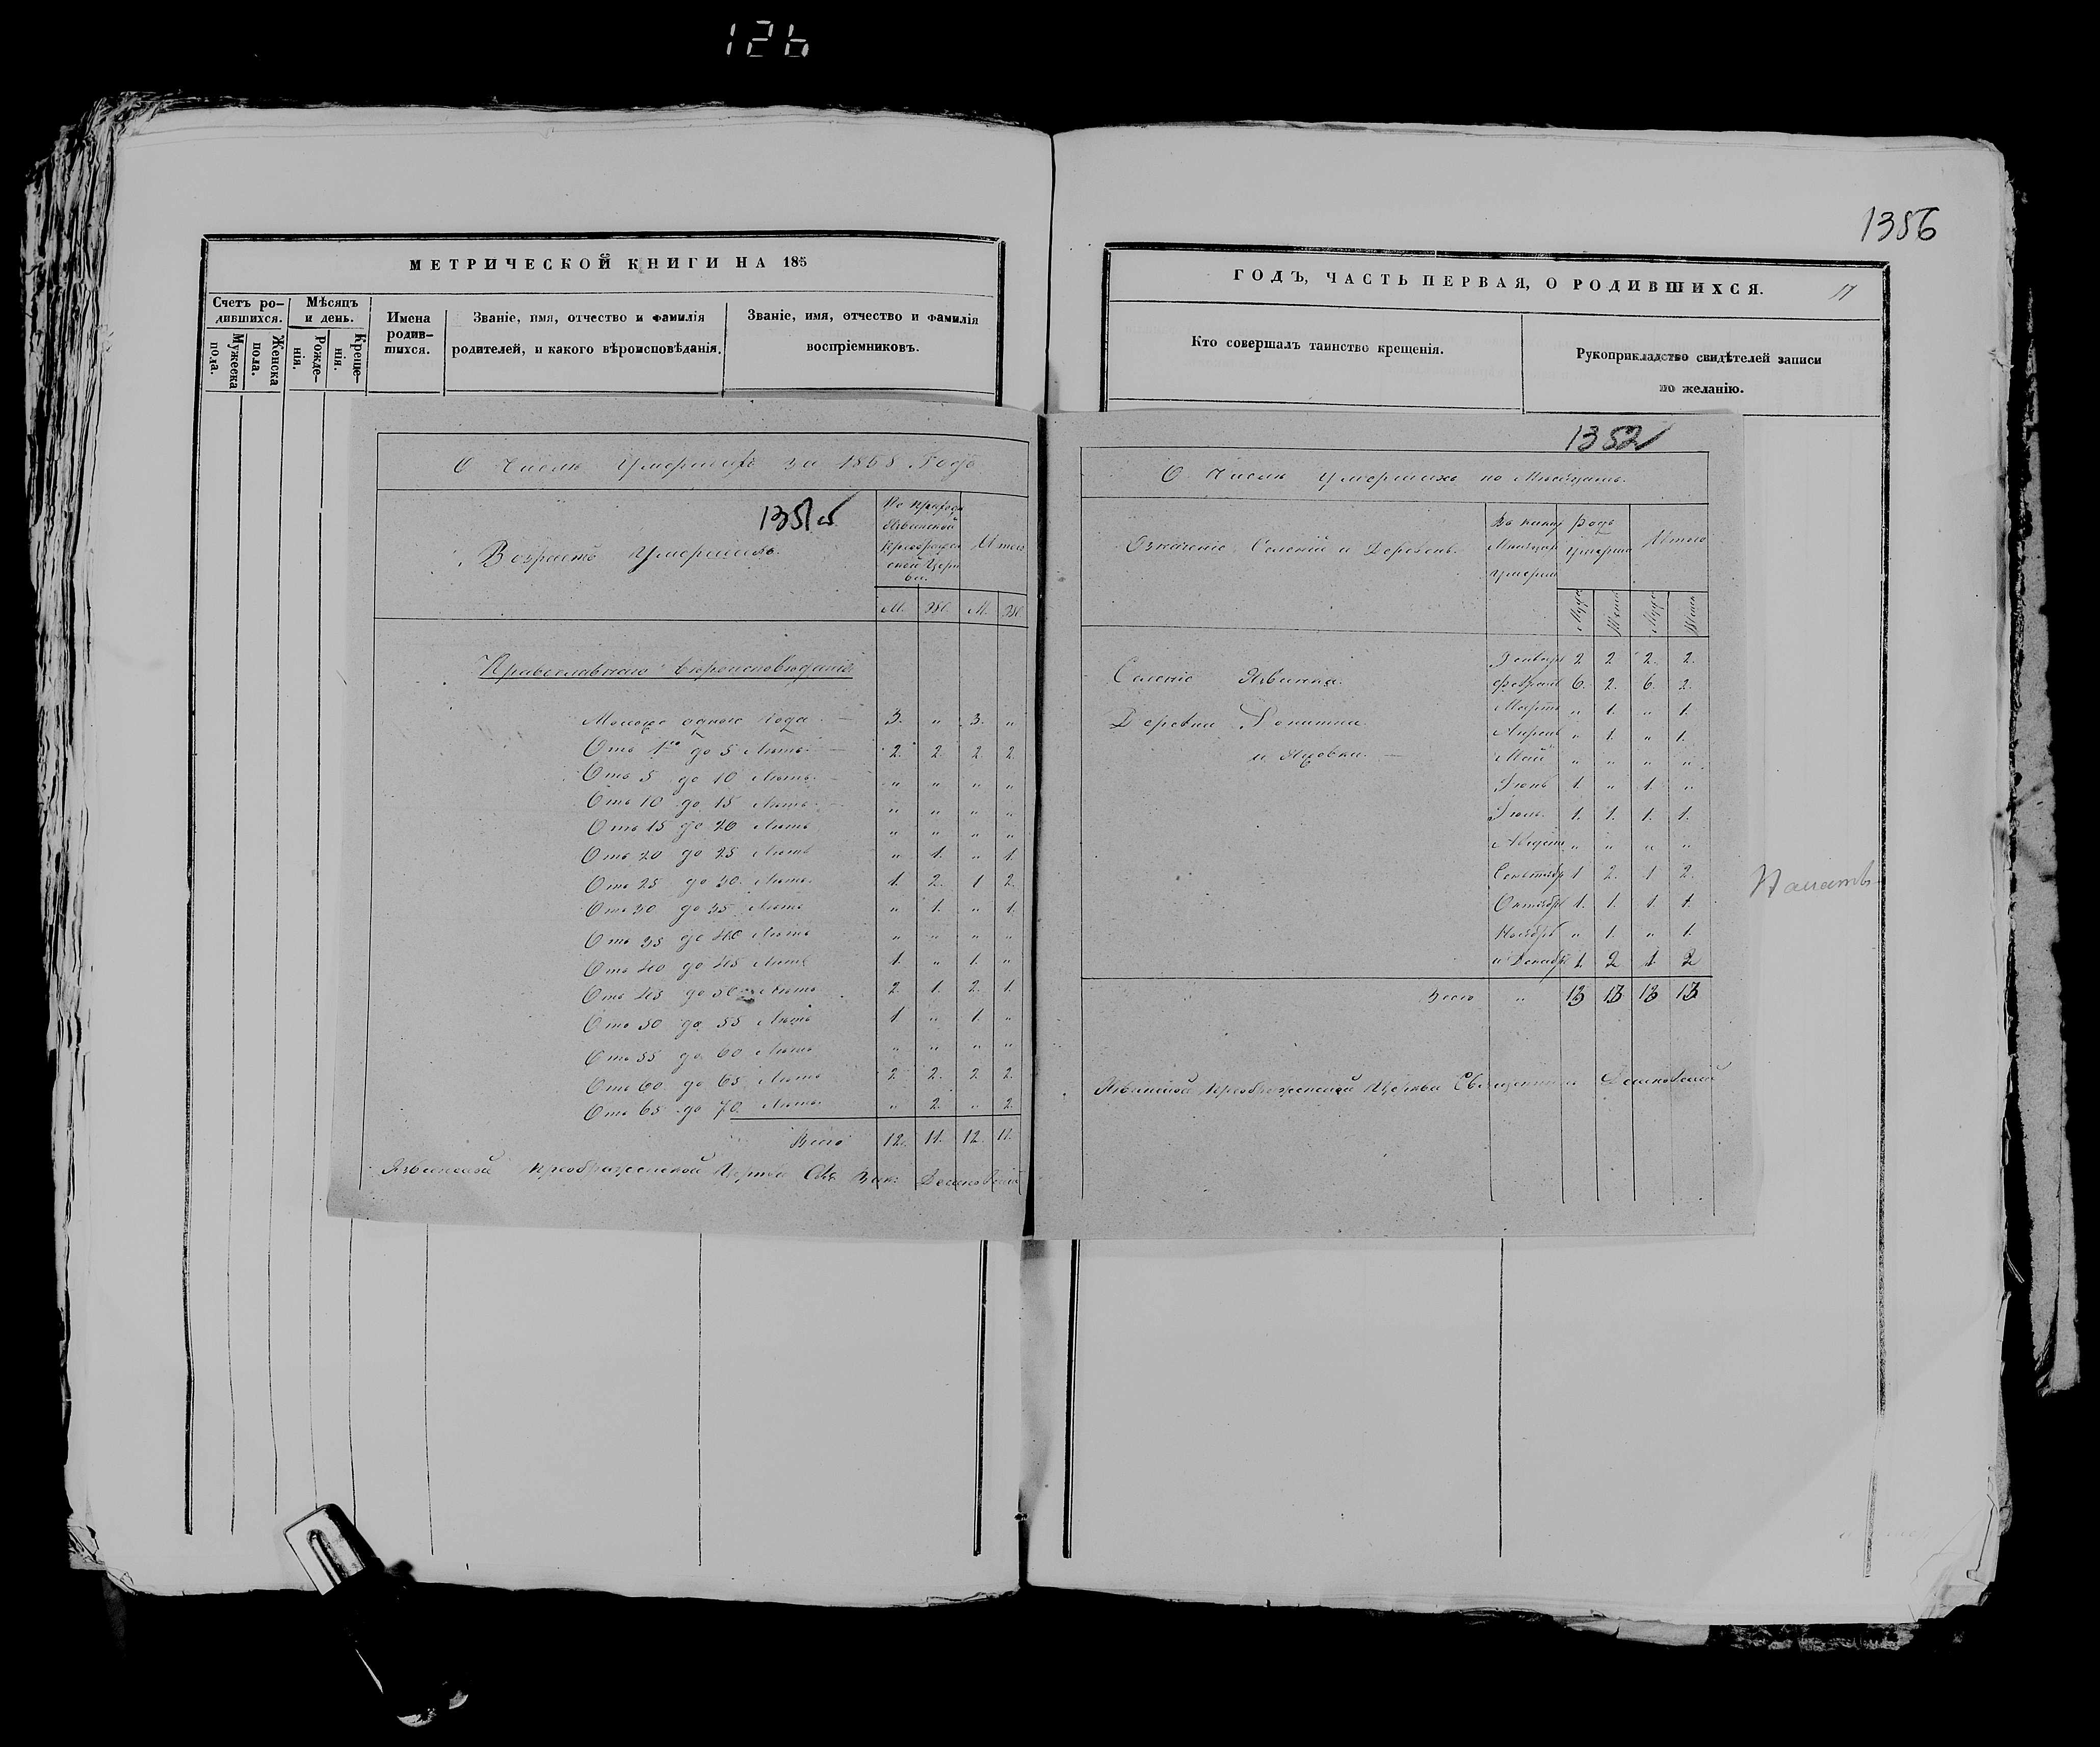 126
1356
МЕТРИЧЕСКОЙ КНИГИ НА 185
Счетъ ро-
дившихся.
Мужеска пола.
Женска пола.
Мѣсяцъ
и день.
Рожде-
нія.
Креще-
нія.
Имена
родив-
шихся.
Званіе, имя, отчество и фамилія
родителей, и какого вѣроисповѣданія.
Званіе, имя, отчество и фамилія
воспріемниковъ.
О Числѣ Умершихъ за 1868 Годъ
Возрастъ Умершихъ.
По приходу
Язвинской
Преображен
ской Церк
ви.
Итого
М. Ж. М. Ж.
Православнаго вѣроисповѣданія
Моложе одного года — 3. " 3. "
Отъ 1го до 5 Лѣтъ — 2. 2. 2. 2.
Отъ 5 до 10 Лѣтъ — " " " "
Отъ 10 до 15 Лѣтъ — " " " "
Отъ 15 до 20 Лѣтъ " " " "
Отъ 20 до 25 Лѣтъ " 1. " 1.
Отъ 25 до 30 Лѣтъ. 1. 2. 1 2.
Отъ 30 до 35 Лѣтъ " 1. " 1.
Отъ 35 до 40 Лѣтъ " " " "
Отъ 40 до 45 Лѣтъ 1. " 1. "
Отъ 45 до 50 Лѣтъ 2. 1. 2. 1.
Отъ 50 до 55 Лѣтъ 1 " 1. "
Отъ 55 до 60 Лѣтъ " " " "
Отъ 60 до 65 Лѣтъ 2 2. 2 2.
Отъ 65 до 70 Лѣтъ. " 2. " 2.
Всего 12. 11. 12. 11.
Преображенской Церкви
ГОДЪ, ЧАСТЬ ПЕРВАЯ, О РОДИВШИХСЯ.
17
Кто совершалъ таинство крещенія.
Рукоприкладство свидѣтелей записи
по желанію.
1352
О Числѣ умершихъ по Мѣсяцамъ.
Означеніе Селеній и Деревень.
Въ какую
Мѣсяцы
умерли
родъ
умерло
Итого
Муж Женс Муж Женс
Селеніе
Деревни
и
Январь 2 2 2. 2.
Февраль 6. 2. 6. 2.
Мартъ " 1. " 1.
Апрель " 1. " 1.
Май " " " "
Іюнь 1. " 1. "
Іюль 1. 1. 1. 1.
Августъ " " " "
Сентябрь 1 2. 1 2.
Октябрь 1. 1. 1. 1.
Ноябрь " 1. " 1.
и Декабрь 1. 2 1. 2
Всего " 13 13 13 13
Преображенской Церкви Священникъ